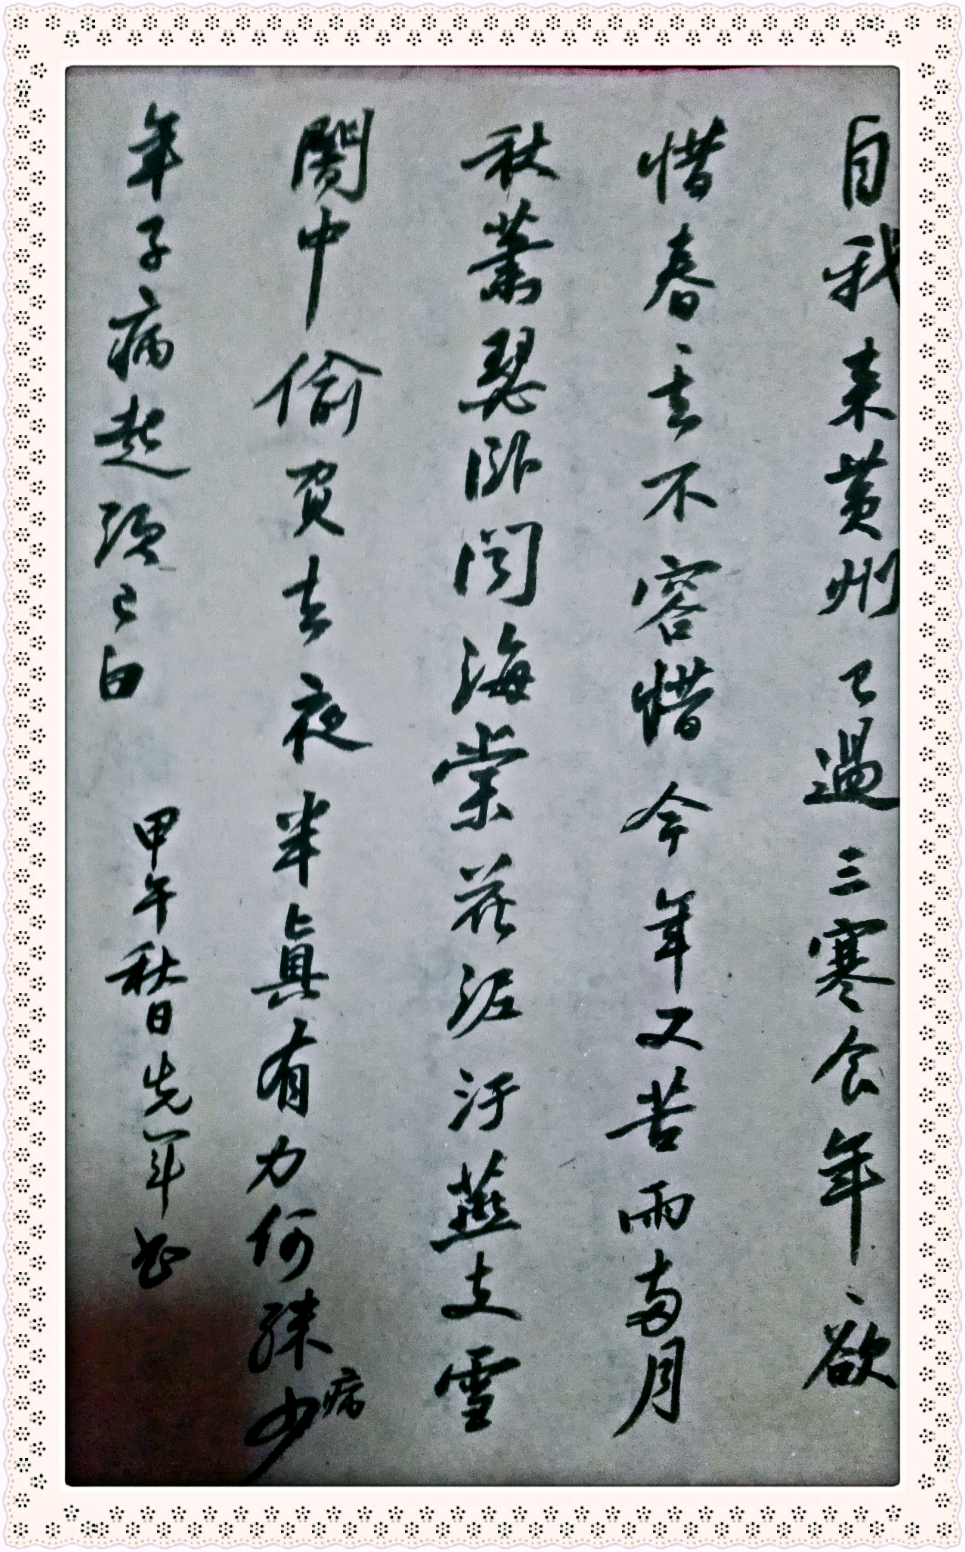 自我来黄州已過三寒食年、欲
惜春、去不容惜今年又苦雨两月
秋蕭瑟卧闻海棠花泥汙燕支雪
闇中偷负去夜半眞有力何殊少病
年子病起须已白
甲午秋日先军书